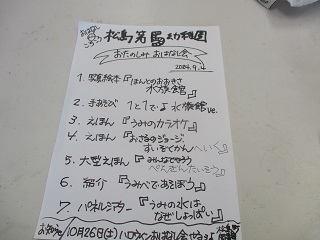 松島第五幼稚園
おたのしみ おはなし会
2024.9.4
1. 写真絵本『ほんとのおおきさ
水族館』
2. 手あそび 1と1でよ水族館ve.
3. えほん 『うみのカラオケ』
4. えほん 『おさるのジョージ
すいぞくかんへいく』
5. 大型えほん『みんなでやろう
ぺんぎんたいそう』
6. 紹介 『うみべであそぼう』
7. パネルシアター『うみの水は
なぜしょっぱい』
10月26日(土)ハロウィンおはなし会やるよ